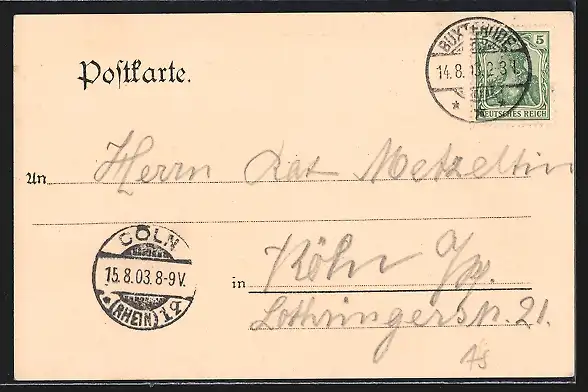 BUXTEHUDE
5
14.8.03.2-3N.
DEUTSCHES REICH
Postkarte.
An Herrn Metzeltin
CÖLN
15.8.03.8-9V.
(RHEIN)
in Köln
Lothringerstr. 21.